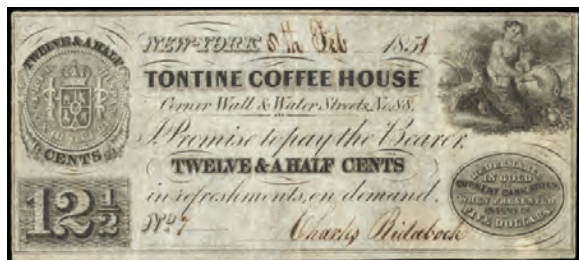 TWELVE & A HALF
CENTS
12½
NEW-YORK 8th Feb 1851
TONTINE COFFEE HOUSE
Corner Wall & Water Streets, No. 88.
I Promise to pay the Bearer,
TWELVE & A HALF CENTS
in refreshments, on demand.
No. 7 Charles Ridabock
REDEEMABLE
IN GOLD
CURRENT BANK NOTES
WHEN PRESENTED
IN SUMS OF
FIVE DOLLARS